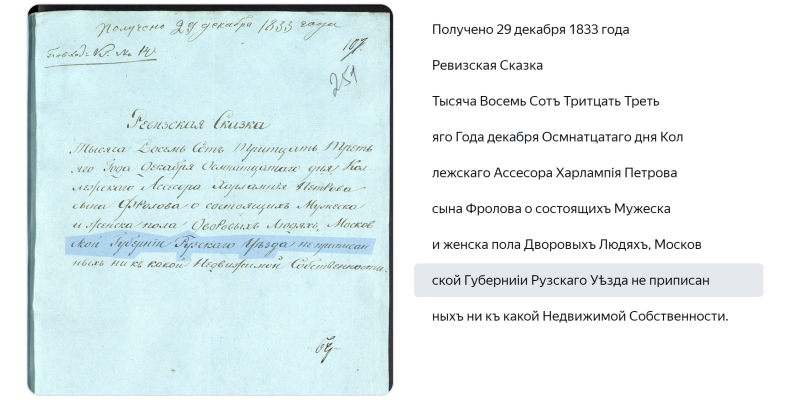 Получено 29 декабря 1833 года
107.
251
Ревизская Сказка
Тысяча Восемь Сотъ Тритцать Треть
яго Года декабря Осмнатцатаго дня Кол
лежскаго Ассесора Харлампія Петрова
сына Фролова о состоящихъ Мужеска
и женска пола Дворовыхъ Людяхъ, Москов
ской Губерніи Рузскаго Уѣзда не приписан
ныхъ ни къ какой Недвижимой Собственности.
Получено 29 декабря 1833 года
Ревизская Сказка
Тысяча Восемь Сотъ Тритцать Треть
яго Года декабря Осмнатцатаго дня Кол
лежскаго Ассесора Харлампія Петрова
сына Фролова о состоящихъ Мужеска
и женска пола Дворовыхъ Людяхъ, Москов
ской Губерниіи Рузскаго Уѣзда не приписан
ныхъ ни къ какой Недвижимой Собственности.